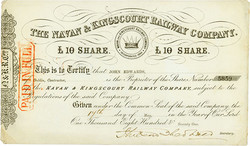 THE NAVAN & KINGSCOURT RAILWAY COMPANY.
£10 SHARE. £10 SHARE.
This is to Certify that JOHN EDWARDS,
is the Proprietor of the Share Number
NAVAN & KINGSCOURT RAILWAY COMPANY, subject to the
regulations of the said Company.
Given under the Common Seal of the said Company, the
day of
One Thousand Eight Hundred &
PAID IN FULL